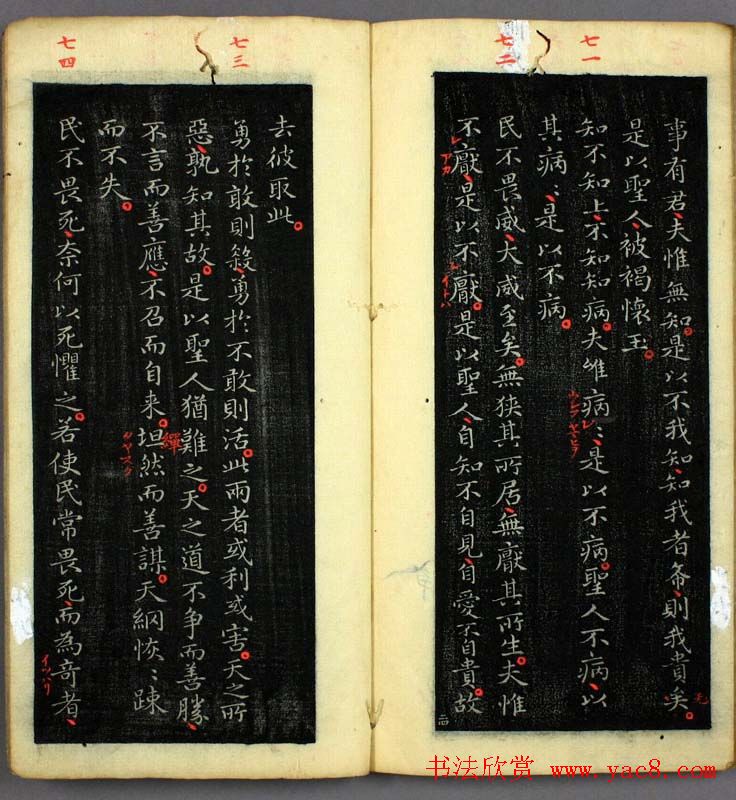 七一
七二
事有君夫惟無知是以不我知知我者希則我貴矣
是以聖人被褐懷玉
知不知上不知知病夫唯病〻是以不病聖人不病以
其病〻是以不病
民不畏威大威至矣無狹其所居無厭其所生夫惟
不厭是以不厭是以聖人自知不自見自愛不自貴故
レ
アカ
イトハ
七三
七四
去彼取此
勇於敢則殺勇於不敢則活此兩者或利或害天之所
惡孰知其故是以聖人猶難之天之道不爭而善勝
不言而善應不召而自来坦然而善謀天網恢〻踈
繟
而不失
民不畏死奈何以死懼之若使民常畏死而為奇者
イツハリ
书法欣赏 www.yac8.com